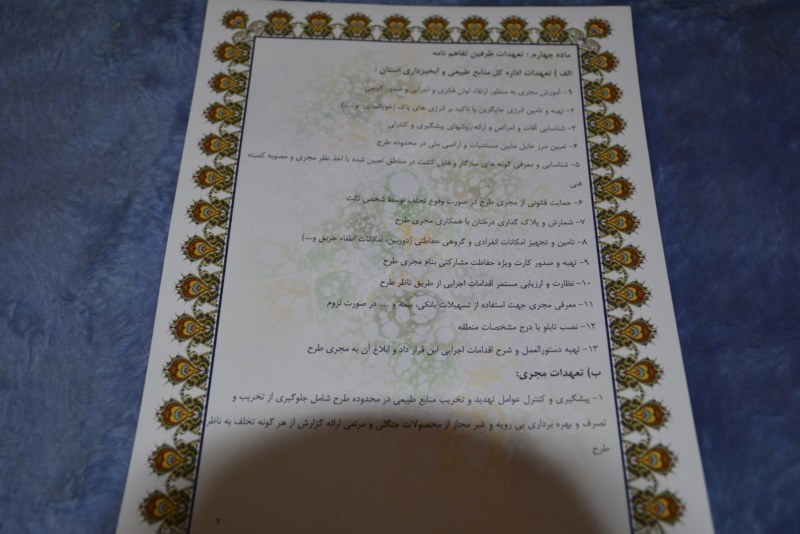 ماده چهارم : تعهدات طرفین تفاهم نامه
الف ) تعهدات اداره کل منابع طبیعی و آبخیزداری استان :
۱- آموزش مجری به منظور ارتقاء توان فکری و اجرایی و صدور گواهی
۲- تهیه و تامین انرژی جایگزین با تاکید بر انرژی های پاک (خورشیدی و ....)
۳- شناسایی آفات و امراض و ارائه روشهای پیشگیری و کنترلی
۴- تعیین مرز حایل مابین مستثنیات و اراضی ملی در محدوده طرح
۵- شناسایی و معرفی گونه های سازگار و قابل کشت در مناطق تعیین شده با اخذ نظر مجری و مصوبه کمیته
فنی
۶- حمایت قانونی از مجری طرح در صورت وقوع تخلف توسط شخص ثالث
۷- شمارش و پلاک گذاری درختان با همکاری مجری طرح
۸- تامین و تجهیز امکانات انفرادی و گروهی حفاظتی (دوربین، امکانات اطفاء حریق و...)
۹- تهیه و صدور کارت ویژه حفاظت مشارکتی بنام مجری طرح
۱۰- نظارت و ارزیابی مستمر اقدامات اجرایی از طریق ناظر طرح
۱۱- معرفی مجری جهت استفاده از تسهیلات بانکی، بیمه و .... در صورت لزوم
۱۲- نصب تابلو با درج مشخصات منطقه
۱۳- تهیه دستورالعمل و شرح اقدامات اجرایی این قرار داد و ابلاغ آن به مجری طرح
ب) تعهدات مجری:
۱- پیشگیری و کنترل عوامل تهدید و تخریب منابع طبیعی در محدوده طرح شامل جلوگیری از تخریب و
تصرف و بهره برداری بی رویه و غیر مجاز از محصولات جنگلی و مرتعی ارائه گزارش از هر گونه تخلف به ناظر
طرح
۲